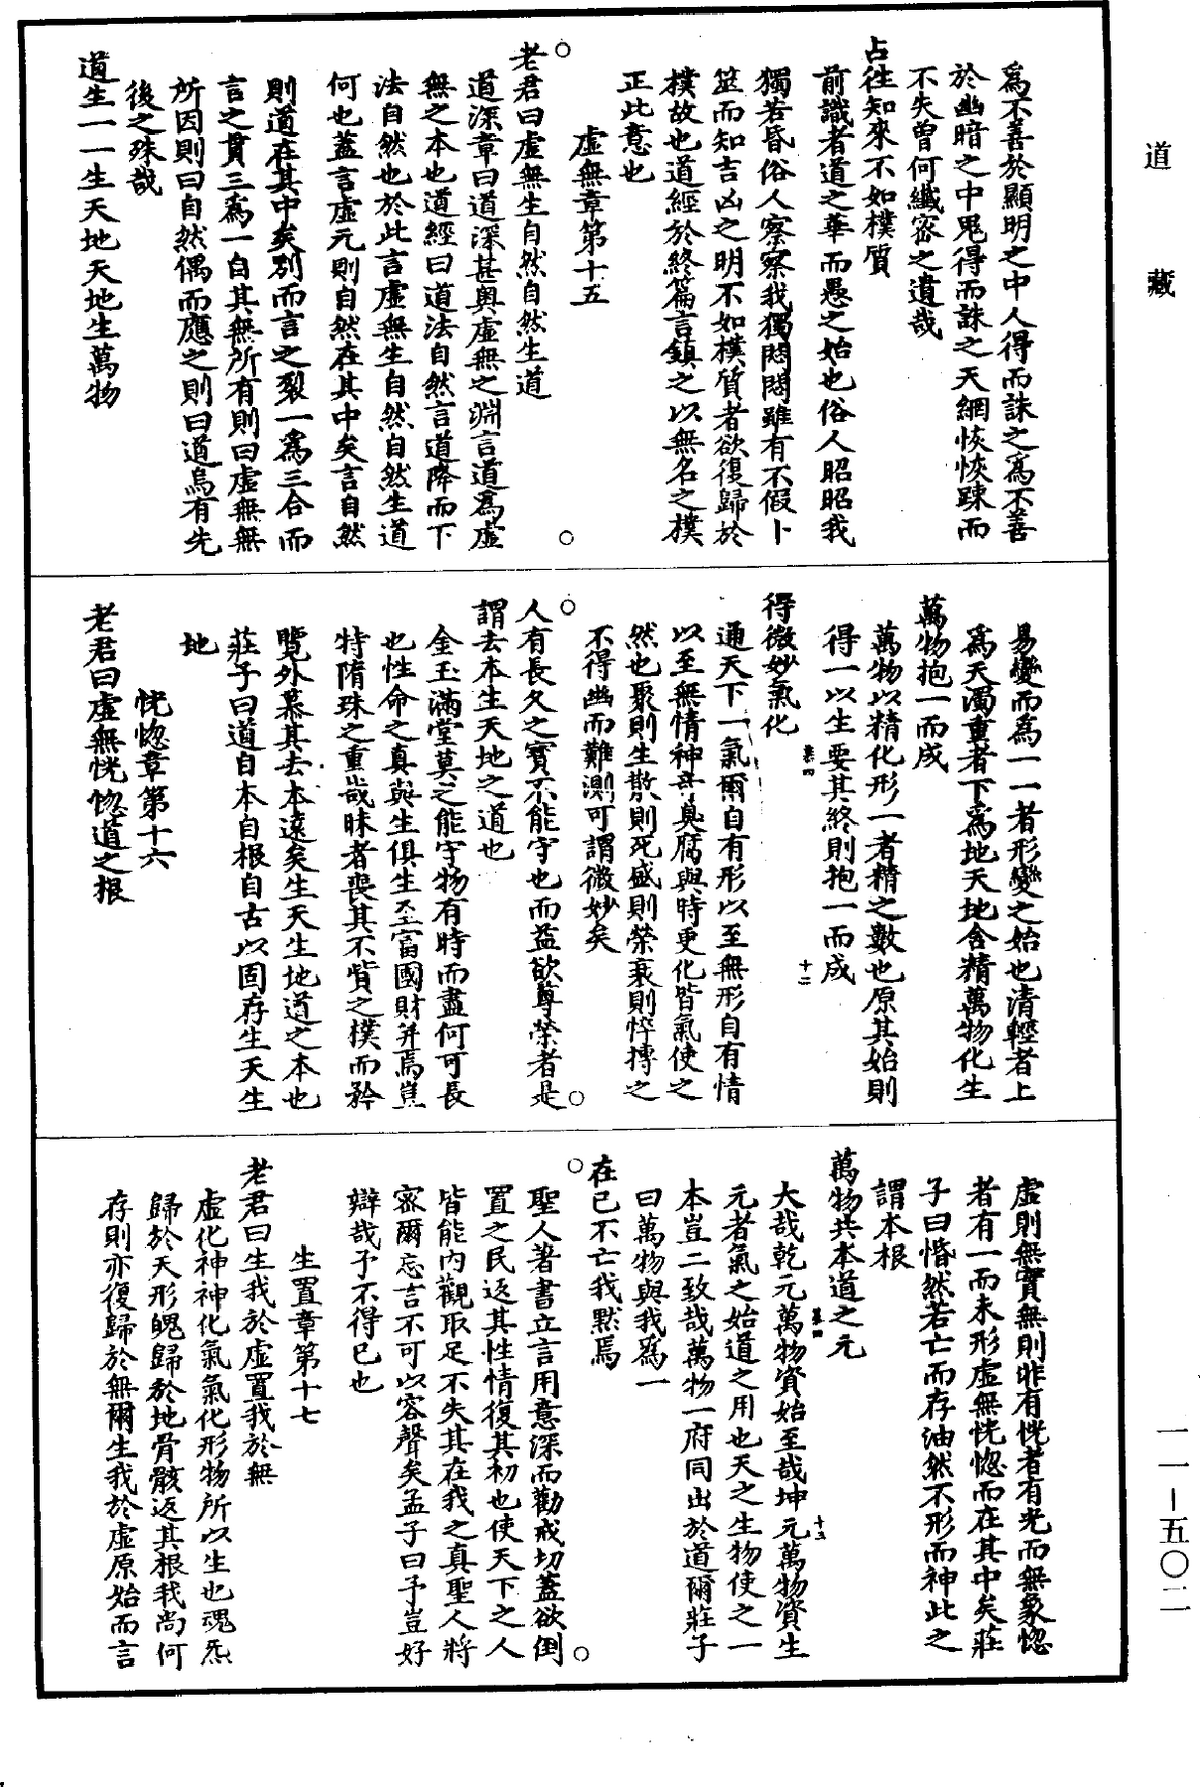 道　藏
爲不善於顯明之中人得而誅之爲不善
於幽暗之中鬼得而誅之天網恢恢踈而
不失曾何纖宻之遺哉
占往知來不如樸質
前識者道之華而愚之始也俗人昭昭我
獨若昏俗人察察我獨悶悶雖有不假卜
筮而知吉凶之明不如樸質者欲復歸於
樸故也道經於終篇言鎮之以無名之樸
正此意也
虛無章第十五
老君曰虛無生自然自然生道
道深章曰道深甚奥虛無之淵言道爲虛
無之本也道經曰道法自然言道降而下
法自然也於此言虛無生自然自然生道
何也蓋言虛元則自然在其中矣言自然
則道在其中矣別而言之裂一爲三合而
言之貫三爲一自其無所有則曰虛無無
所因則曰自然偶而應之則曰道烏有先
後之殊哉
道生一一生天地天地生萬物
易變而爲一一者形變之始也清輕者上
爲天濁重者下爲地天地含精萬物化生
萬物抱一而成
萬物以精化形一者精之數也原其始則
得一以生要其終則抱一而成
得微妙氣化
通天下一氣爾自有形以至無形自有情
以至無情神奇臭腐與時更化皆氣使之
然也聚則生散則死盛則榮衰則悴摶之
不得幽而難測可謂微妙矣
人有長久之寶不能守也而益欲尊榮者是
謂去本生天地之道也
金玉滿堂莫之能守物有時而盡何可長
也性命之真與生俱生至富國財并焉豈
特隋珠之重哉昧者喪其不貲之樸而矜
覽外慕其去本遠矣生天生地道之本也
莊子曰道自本自根自古以固存生天生
地
恍惚章第十六
老君曰虛無恍惚道之根
虛則無實無則非有恍者有光而無象惚
者有一而未形虛無恍惚而在其中矣莊
子曰惛然若亡而存油然不形而神此之
謂本根
萬物共本道之元
大哉乾元萬物資始至哉坤元萬物資生
元者氣之始道之用也天之生物使之一
本豈二致哉萬物一府同出於道爾莊子
曰萬物與我爲一
在已不亡我黙焉
聖人著書立言用意深而勸戒切蓋欲倒
置之民返其性情復其初也使天下之人
皆能内觀取足不失其在我之真聖人將
宻爾忘言不可以容聲矣孟子曰予豈好
辯哉予不得已也
生置章第十七
老君曰生我於虛置我於無
虛化神神化氣氣化形物所以生也魂炁
歸於天形魄歸於地骨骸返其根我尚何
存則亦復歸於無爾生我於虛原始而言
一一－五〇二